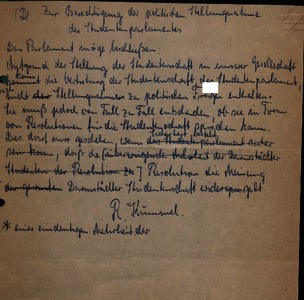 (D) Zur Berechtigung der politischen Stellungnahme
des Studentenparlamentes
Das Parlament möge beschließen:
Aufgrund der Stellung der Studentenschaft in unserer Gesellschaft
kann die Vertretung der Studentenschaft, das Studentenparlament,
nicht der Stellungnahmen zu politischen Fragen enthalten.
Sie muß jedoch von Fall zu Fall entscheiden, ob sie in Form
von Resolutionen für die Studentenschaft sprechen kann.
Dies darf nur geschehen, wenn das Studentenparlament sicher
sein kann, daß die überwiegende Mehrheit der Darmstädter
Studenten der Resolution zu] Resolution die Meinung
der gesamten Darmstädter Studentenschaft widerspiegelt
R. Kummel.
* einer eindeutigen Mehrheit der